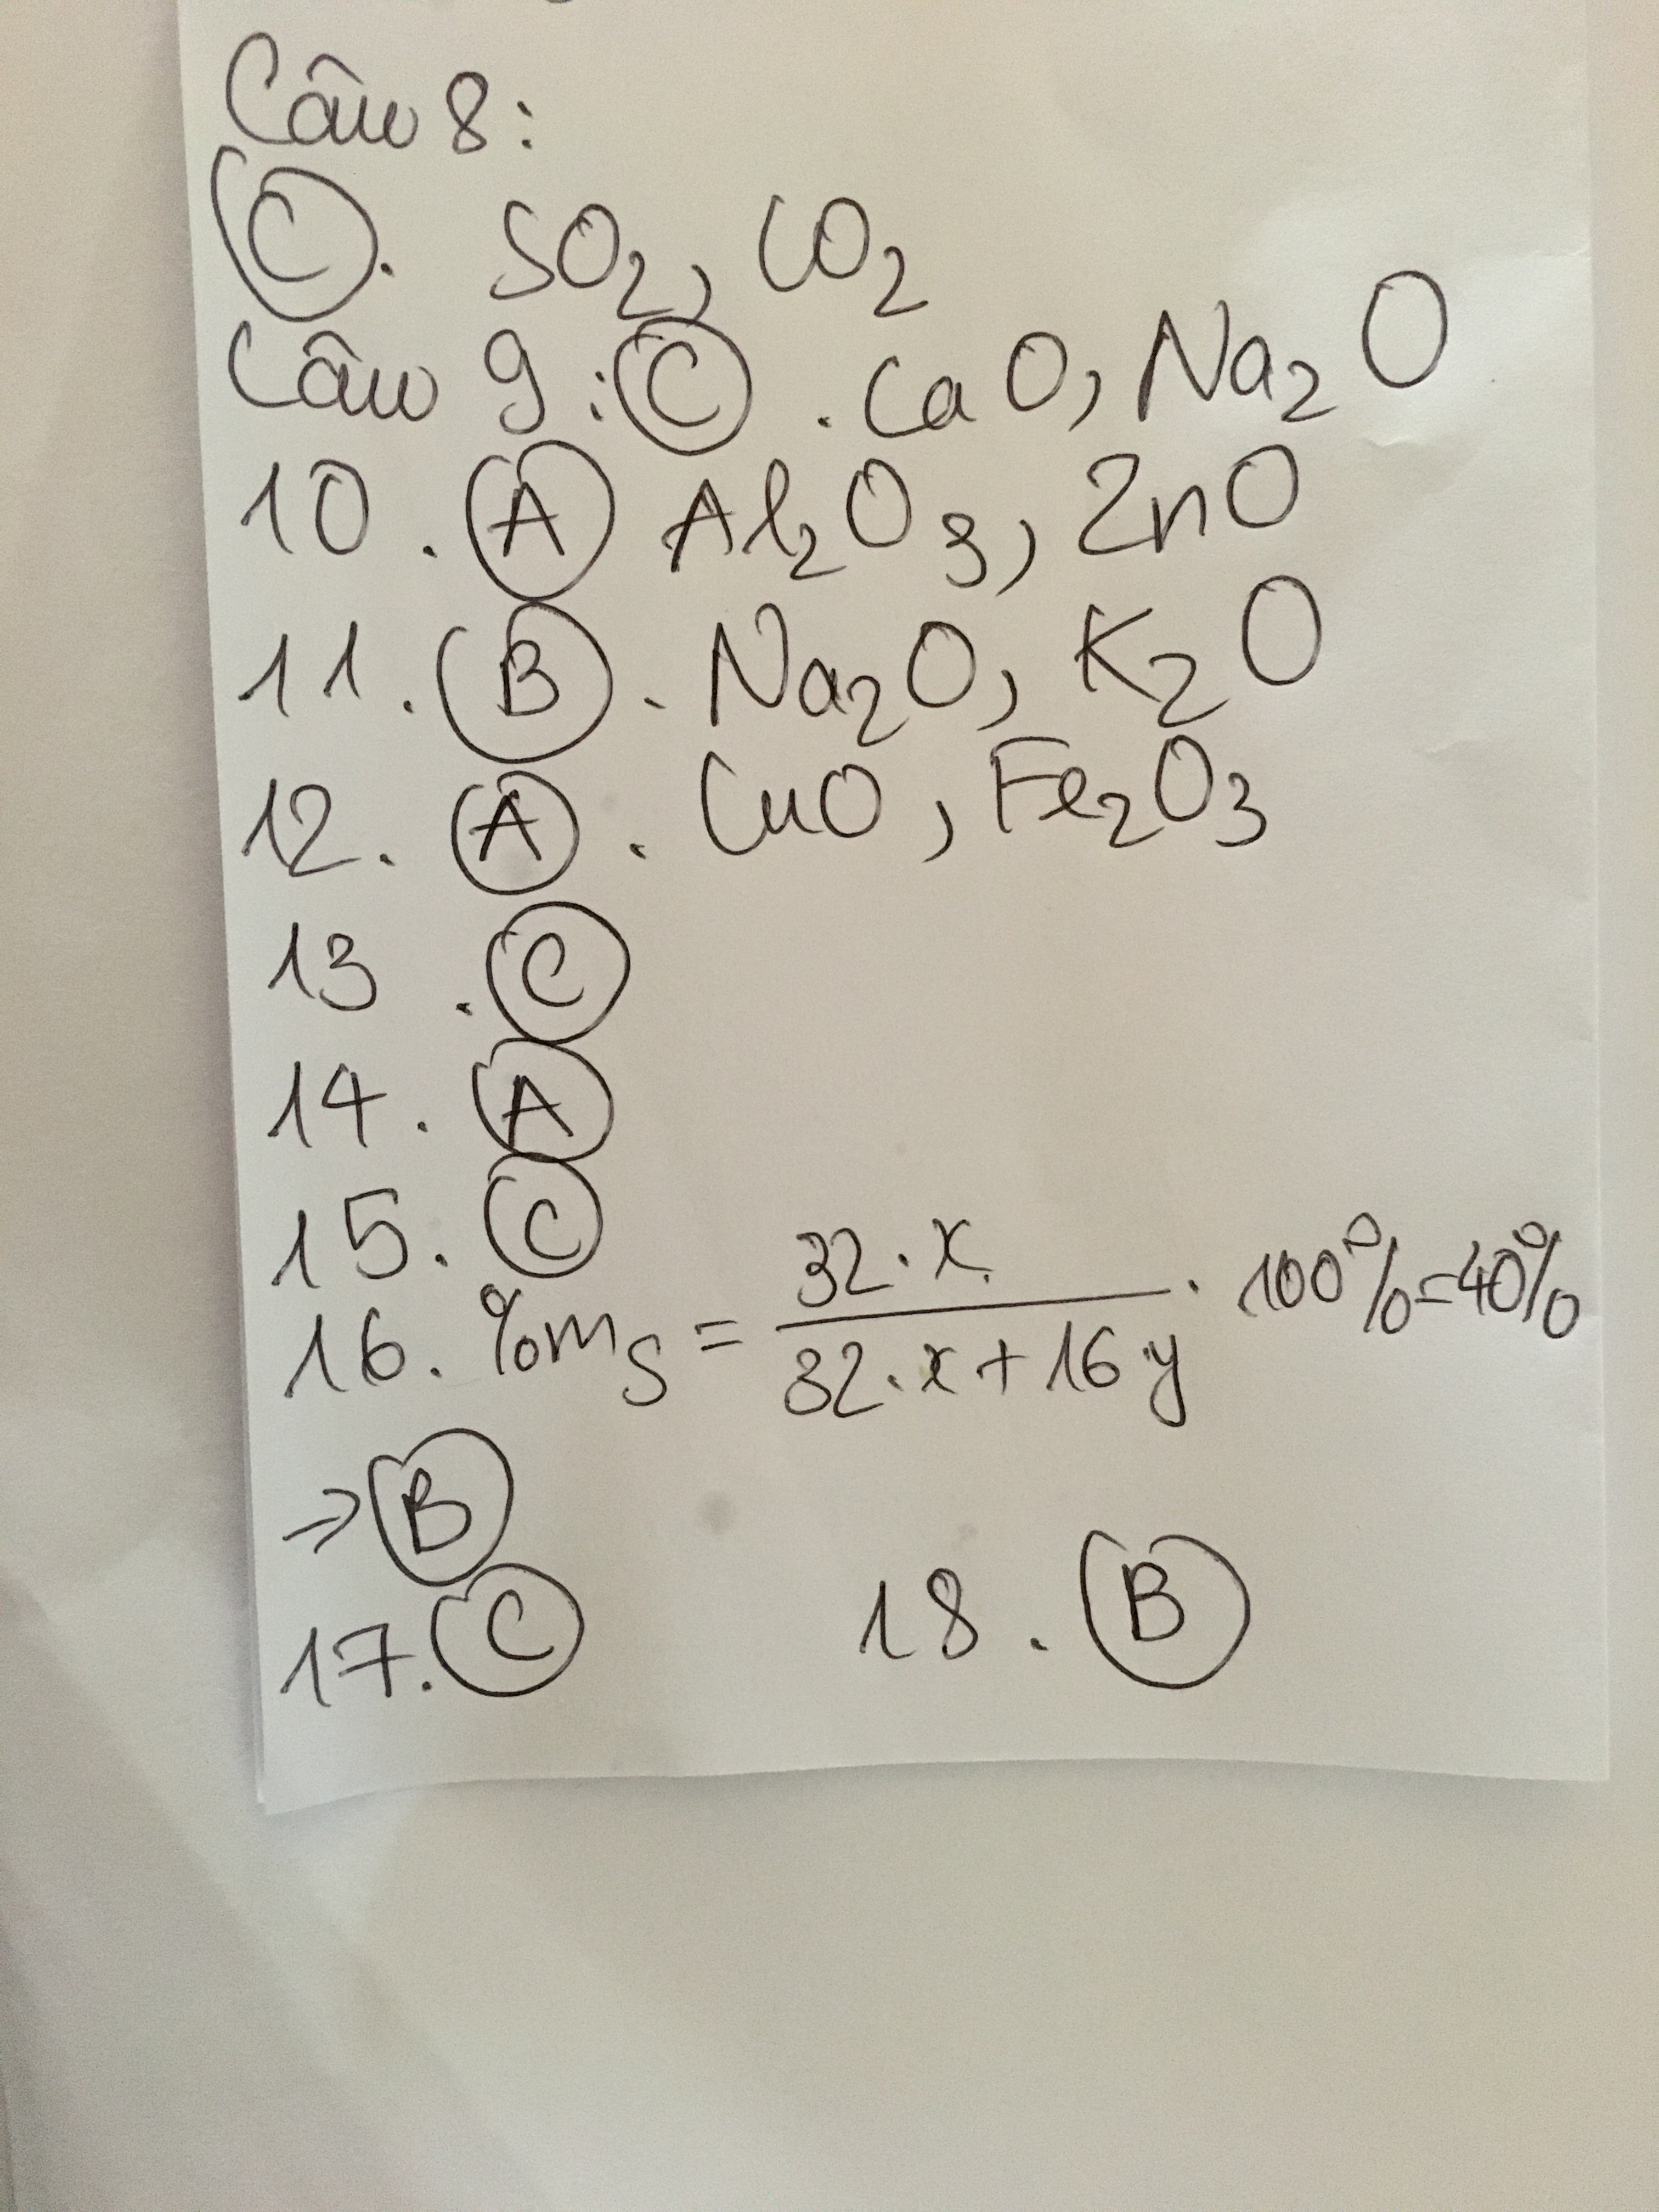 Câu 8:
C. SO₂, CO₂
Câu 9: C. CaO, Na₂O
10. A Al₂O₃, ZnO
11. B. Na₂O, K₂O
12. A. CuO, Fe₂O₃
13. C
14. A
15. C
16. %mS = 32.x / 32.x + 16y . 100% = 40%
⇒ B
17. C 18. B